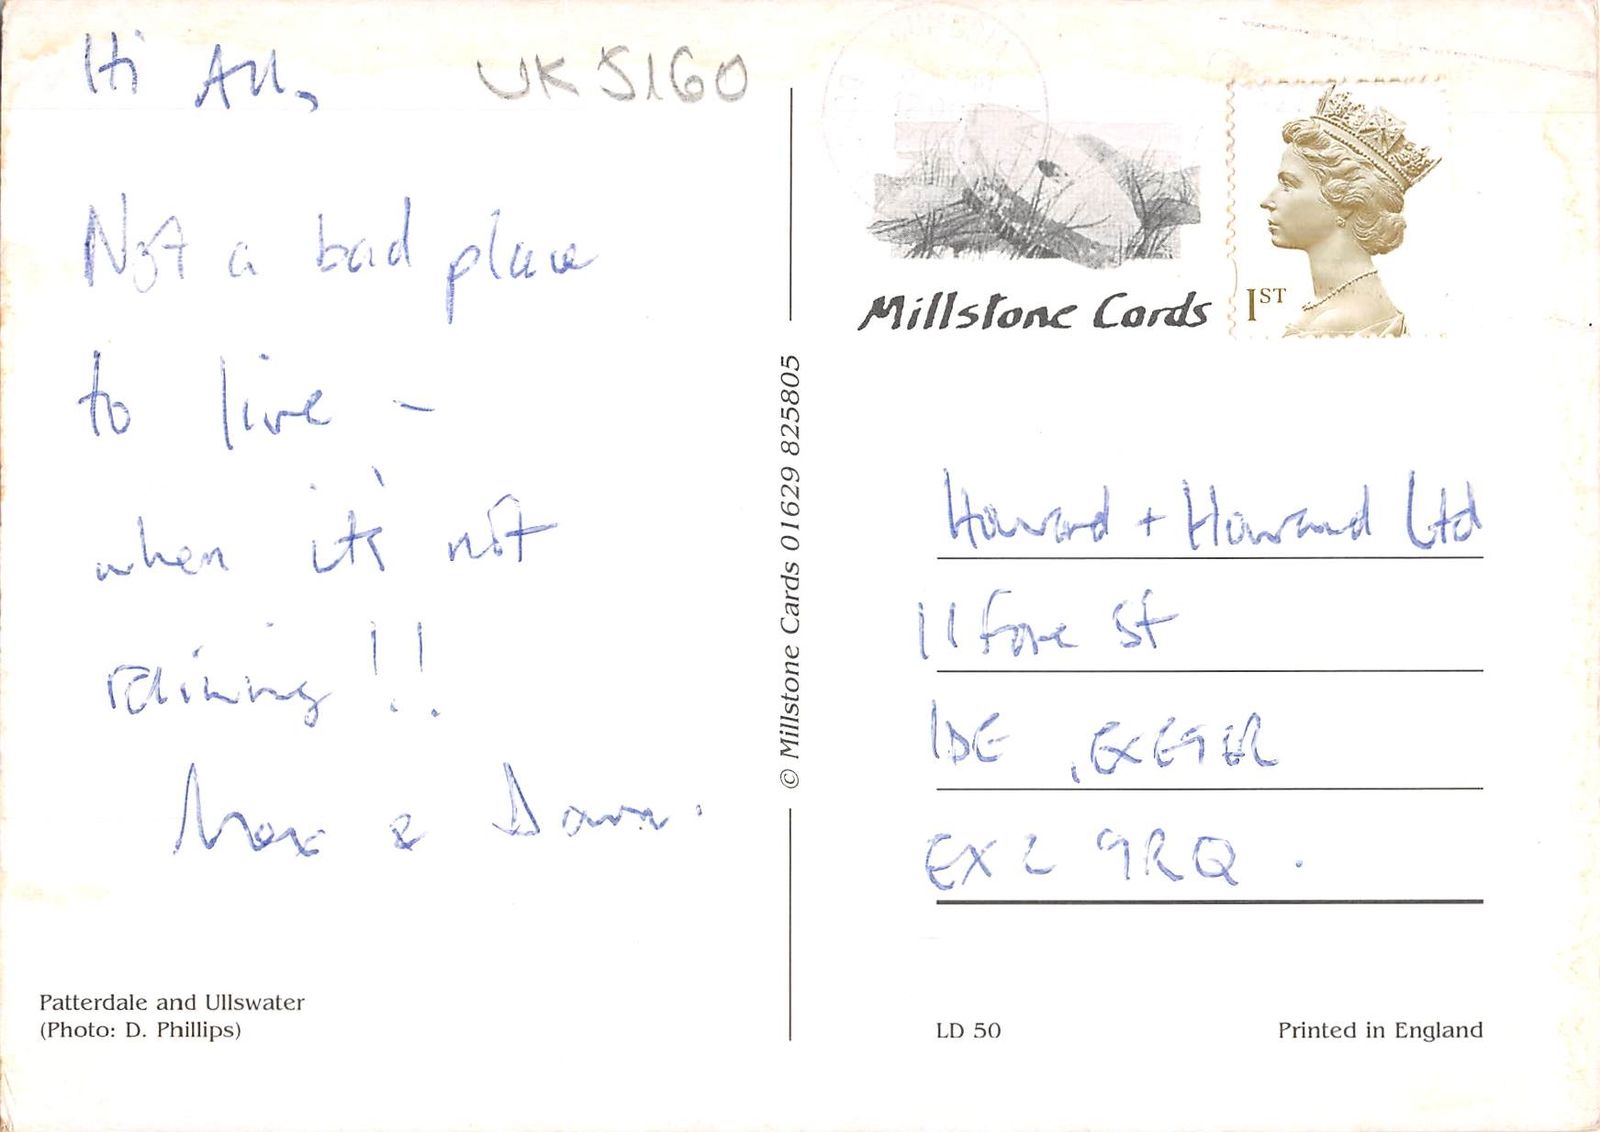 Hi All,
UK5160
Not a bad place
to live -
when it's not
raining!!
Max &
Millstone Cards
1ST
© Millstone Cards 01629 825805
Howard + Howard Ltd
11 Fore St
IDE, EXETER
EX2 9RQ.
Patterdale and Ullswater
(Photo: D. Phillips)
LD 50
Printed in England